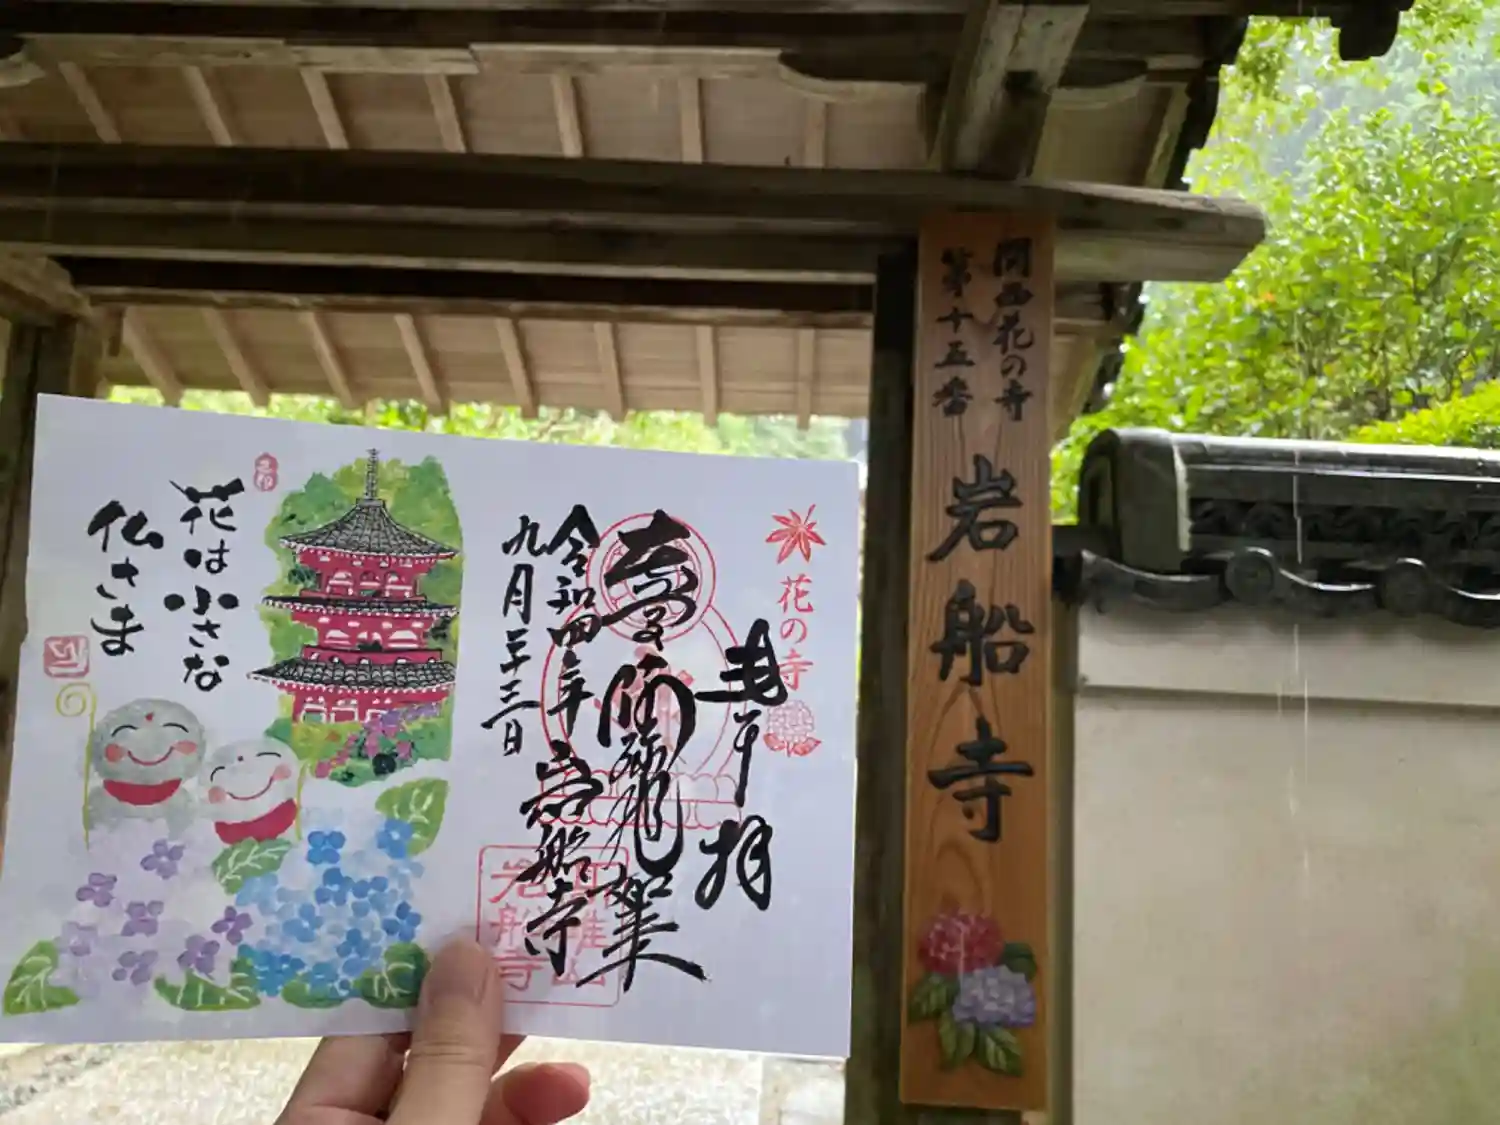 関西花の寺
第十五番
岩船寺
花は小さな
仏さま
花の寺
奉拝
阿弥陀如来
令和四年
九月二十三日
岩船寺
岩船寺